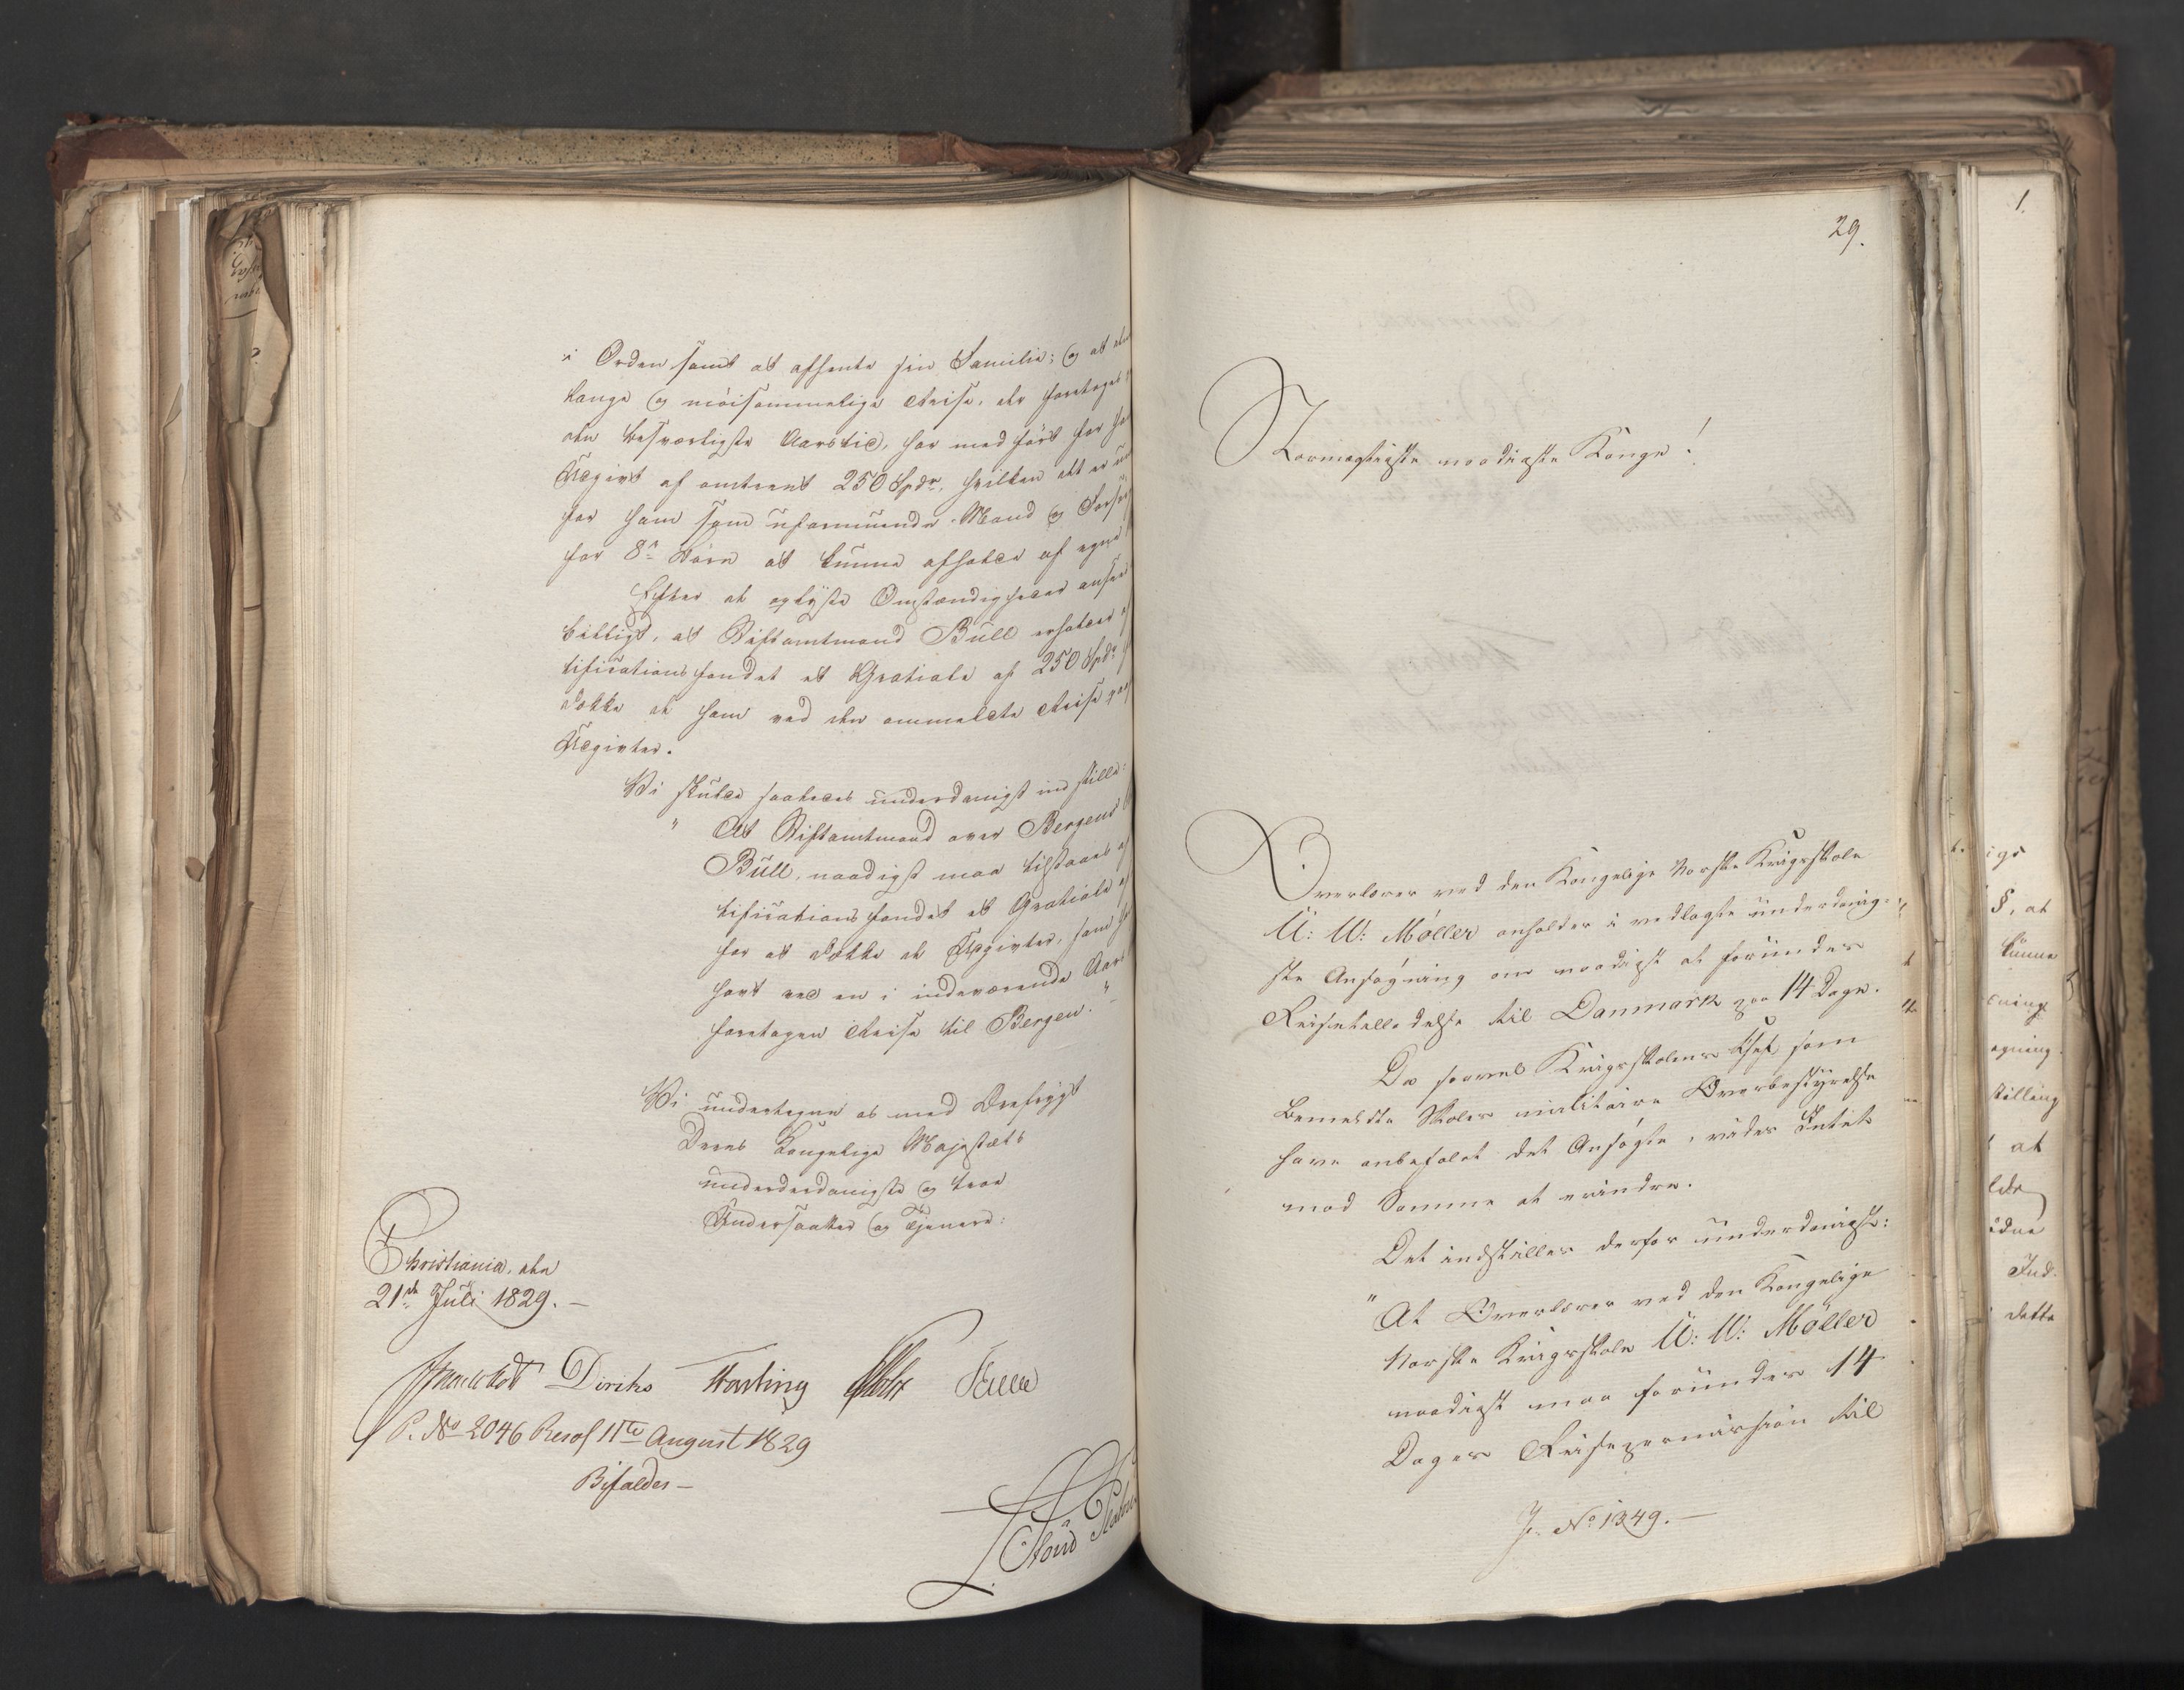 i Orden samt at afhente sin Familie; og at den
lange og möisommelige Reise, der foretoges
den besværligste Aarstid, har medført for
Udgivt af omtrent 250 Spdr, hvilken det er
for ham som uformuende Mand og
for 8te Börn at kunne afholde af egne
Efter de oplyste Omstændigheder
billigt, at Stiftamtmand Bull erholder
tificationsfondet et Gratiale af 250 Spdr
dække de ham ved den ommeldte Reise
Udgivter.
Vi skulde saaledes underdanigst indstille:
" At Stiftamtmand over Bergens
Bull, naadigst maa tilstaaes
tificationsfondet et Gratiale
for at dække de Udgivter, som
havt ved en i indeværende Aar
foretagen Reise til Bergen."
Vi undertegne os med Dybeste
Deres Kongelige Majestæts
underdanigste og troe
Undersaatter og Tjenere:
Christiania, den
21de Juli 1829. –
Diriks
P. No 2046 Resol 11te August 1829
Bifaldes –
29.
Stormægtigste naadigste Konge!
Overlærer ved den Kongelige Norske Krigsskole
U: W: Møller anholder i vedlagte underdanig-
ste Ansøgning om naadigst at forundes
Reisetilladelse til Danmark paa 14 Dage.
Da saavel Krigsskolens Chef, som
bemeldte Skoles militaire Overbestyrelse
have anbefalet det Ansøgte, vides Intet
mod Samme at erindre.
Det indstilles derfor underdanigst:
" At Overlærer ved den Kongelige
Norske Krigsskole U: W: Møller
naadigst maa forundes 14
Dages Reisepermission til
J. No 1349. –
1.
§, at
kunne
at
Ind.
dette